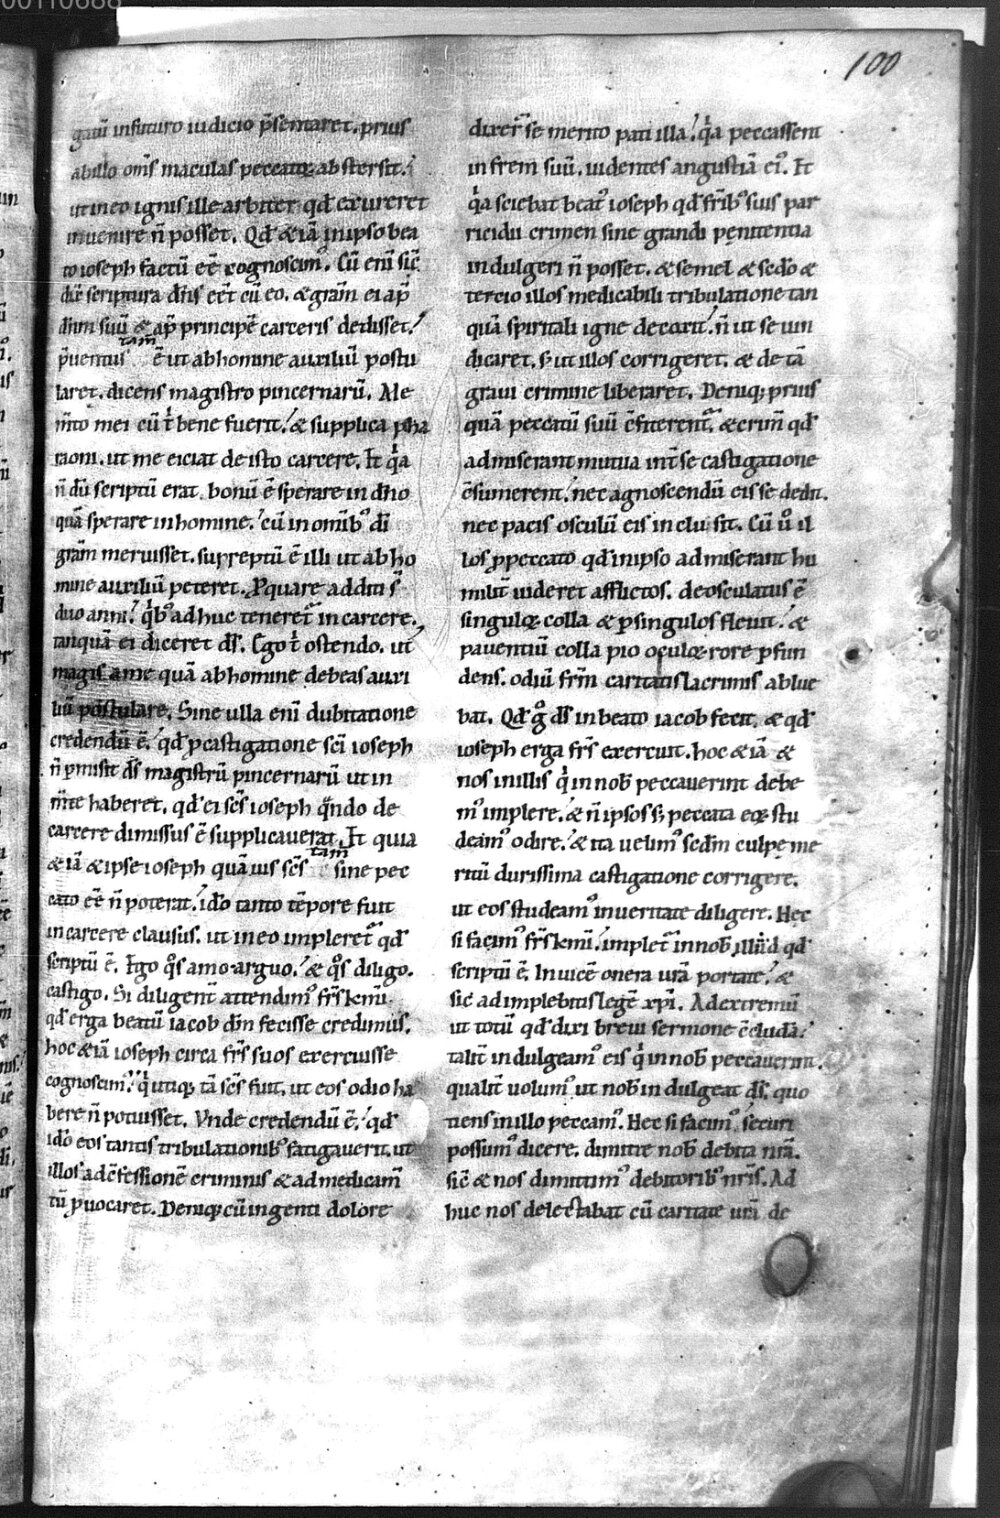 100
gatū in futuro iudicio p̄sentaret. prius
ab illo om̄s maculas peccatoꝝ abstersit.
ut in eo ignis ille arbiter qd̄ exureret
inuenire n̄ posset. Qd̄ & iā in ipso bea
to ioseph factū eē cognoscimꝰ. Cū eni sic̄
dic̄ scriptura dn̄s eēt cū eo. & grām ei ap̄
dn̄m suū & ap̄ principē carceris dedisset.
p̄uentus tam̄ ē ut ab homine auxiliū postu
laret. dicens magistro pincernarū. Me
m̄to mei cū t̄ bene fuerit. & supplica pha
raoni. ut me eiciat de isto carcere. Et q̇a
n̄ dū scriptū erat. bonū ē sperare in dn̄o
quā sperare in homine. cū in omībꝰ di
grām meruisset. surreptū ē illi ut ab ho
mine auxiliū peteret. Ꝓ quare additi s̄
duo anni. q̇bꝰ adhuc teneret᷑ in carcere.
tanquā ei diceret ds̄. Ego t̄ ostendo. ut
magis a me quā ab homine debeas auxi
liū postulare. Sine ulla eni dubitatione
credendū ē. qd̄ ꝓ castigatione sc̄i ioseph
n̄ ꝑmisit ds̄ magistrū pincernarū ut in
m̄te haberet. qd̄ ei sc̄s ioseph qn̄do de
carcere dimissus ē supplicauerat. Et quia
& iā & ipse ioseph quāuis sc̄s tam̄ sine pec
cato eē n̄ poterat. ido tanto tēpore fuit
in carcere clausus. ut in eo impleret᷑ qd̄
scriptū ē. Ego qͦs amo arguo. & qͦs diligo.
castigo. Si diligent̄ attendimꝰ frs̄ kmi.
qd̄ erga beatū iacob dm̄ fecisse credimus.
hoc & iā ioseph circa frs̄ suos exercuisse
cognoscimꝰ. q̇ utiqꝫ tā sc̄s fuit. ut eos odio ha
bere n̄ potuisset. Vnde credendū ē. qd̄
ido eos tantis tribulationibꝰ fatigauerit. ut
illos ad c̄fessionē criminis & ad medicam̄
tū ꝓuocaret. Deniqꝫ cū ingenti dolore
dixer̄ se merito pati illa. q̇a peccassent
in frem̄ suū. uidentes angustiā eiꝰ. Et
q̇a sciebat beatꝰ ioseph qd̄ frībꝰ suis par
ricidii crimen sine grandi penitentia
indulgeri n̄ posset. & semel & sedo &
tercio illos medicabili tribulatione tan
quā spiritali igne decoxit. n̄ ut se uin
dicaret. s; ut illos corrigeret. & de tā
graui crimine liberaret. Deniqꝫ prius
quā peccatū suū c̄fiterent᷑. & crim̄ qd̄
admiserant mutua int̄ se castigatione
c̄sumerent. nec agnoscendū eis se dedit.
nec pacis osculū eis inclusit. Cū uͦ il
los ꝓ peccato qd̄ in ipso admiserant hu
milit̄ uideret afflictos. deosculatus ē
singuloꝝ colla & ꝑ singulos fleuit. &
pauentiū colla pio oculoꝝ rore ꝑfun
dens. odiū frm̄ caritatis lacrimis ablue
bat. Qd̄ gͦ ds̄ in beato iacob fecit. & qd̄
ioseph erga frs̄ exercuit. hoc & iā &
nos in illis q̇ in nob̄ peccauerint debe
mꝰ implere. & n̄ ipsos s; peccata eoꝝ stu
deamꝰ odire. & ita uelimꝰ scdm̄ culpe me
ritū durissima castigatione corrigere.
ut eos studeamꝰ in ueritate diligere. Hec
si facimꝰ frs̄ kmi. implet᷑ in nob̄ illud qd̄
scriptū ē. Inuicē onera ur̄a portate. &
sic̄ adimplebitis legē xp̄i. Ad extremū
ut totū qd̄ dixi breui sermone c̄cludā.
talit̄ indulgeamꝰ eis q̇ in nob̄ peccauerint.
qualit̄ uolumꝰ ut nob̄ indulgeat ds̄. quo
tiens in illo peccamꝰ. Hec si facimꝰ. securi
possumꝰ dicere. dimitte nob̄ debita nr̄a.
sic̄ & nos dimittimꝰ debitoribꝰ nr̄is. Ad
huc nos delectabat cū caritate ur̄a de